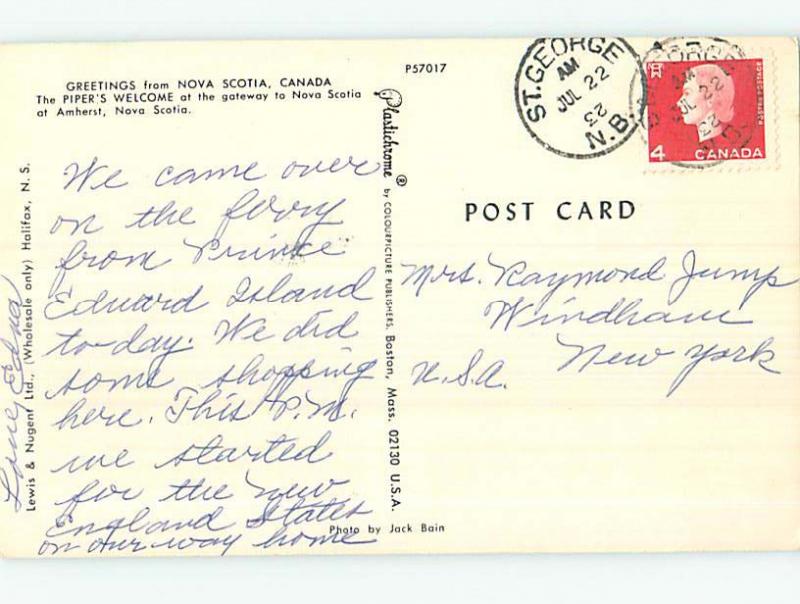 GREETINGS from NOVA SCOTIA, CANADA
The PIPER'S WELCOME at the gateway to Nova Scotia
at Amherst, Nova Scotia.
P57017
We came over
on the ferry
from Prince
Edward Island
to-day. We did
some shopping
here. This P.M.
we started
for the New
England States
on our way home
Love Edna
Lewis & Nugent Ltd., (Wholesale only) Halifax, N. S.
Plastichrome ® by COLOURPICTURE PUBLISHERS, Boston, Mass. 02130 U.S.A.
Photo by Jack Bain
ST. GEORGE
AM
JUL 22
N.B.
POSTES POSTAGE
4 CANADA
POST CARD
Mrs. Raymond Jump
Windham
New York
U.S.A.